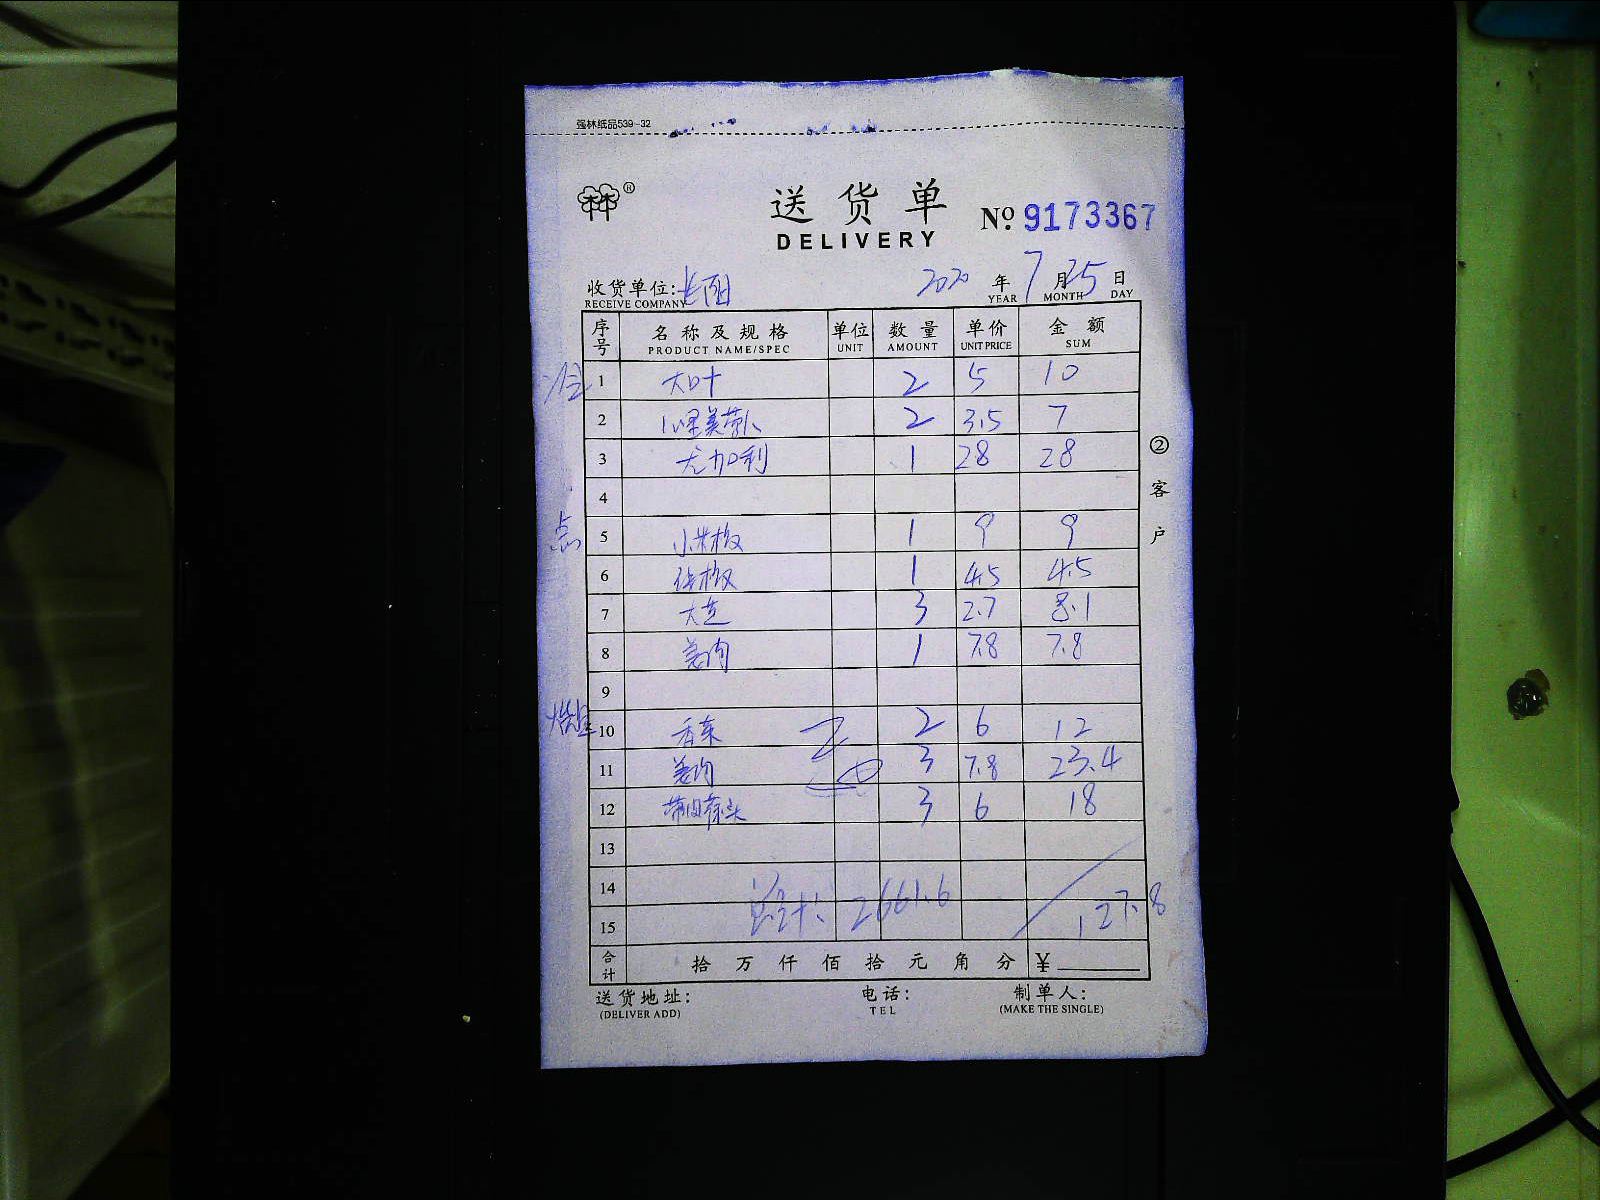 强林纸品539-32
®
送货单
DELIVERY
№ 9173367
收货单位:
RECEIVE COMPANY
2020 年 7 月 25 日
YEAR MONTH DAY
序号 名称及规格 单位 数量 单价 金额
PRODUCT NAME/SPEC UNIT AMOUNT UNIT PRICE SUM
1 大叶 2 5 10
2 2 3.5 7
3 尤加利 1 28 28
4
点
5 小米椒 1 9 9
6 1 4.5 4.5
7 大芝 3 2.7 8.1
8 姜肉 1 7.8 7.8
9
10 香菜 2 6 12
11 姜肉 3 7.8 23.4
12 3 6 18
13
14
15
总计: 2661.6
127.8
合计 拾 万 仟 佰 拾 元 角 分 ¥
送货地址: 电话: 制单人:
(DELIVER ADD) TEL (MAKE THE SINGLE)
②客户